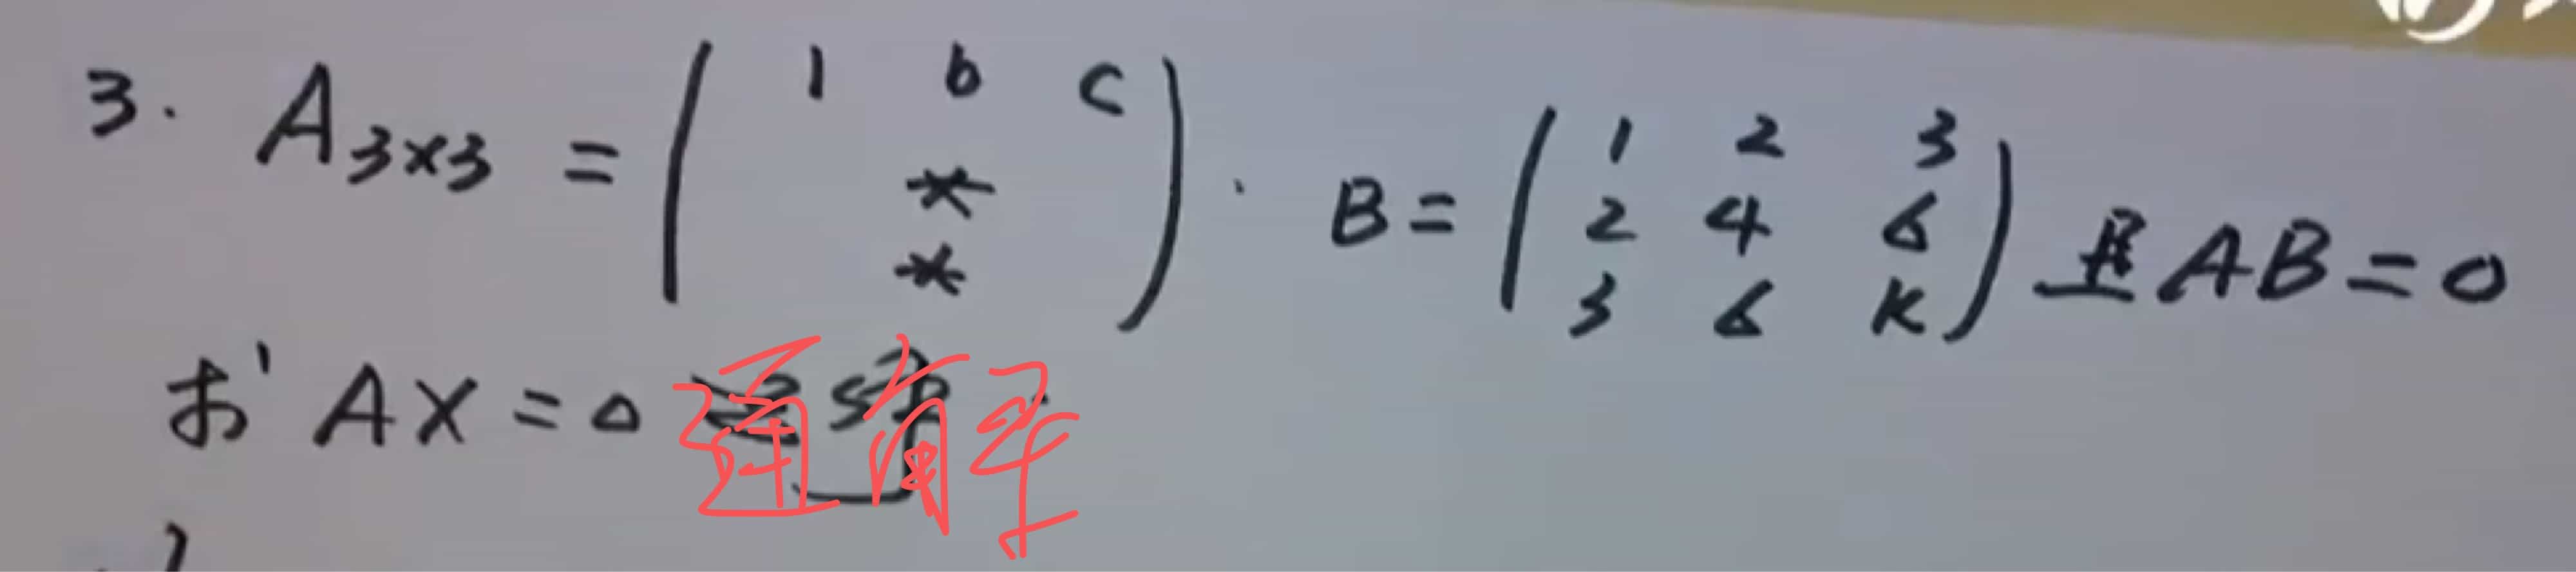 3. A₃ₓ₃ = ( 1 b c ; * ; * ). B = ( 1 2 3 ; 2 4 6 ; 3 6 k ) 且 AB = 0
求 AX = 0 通解